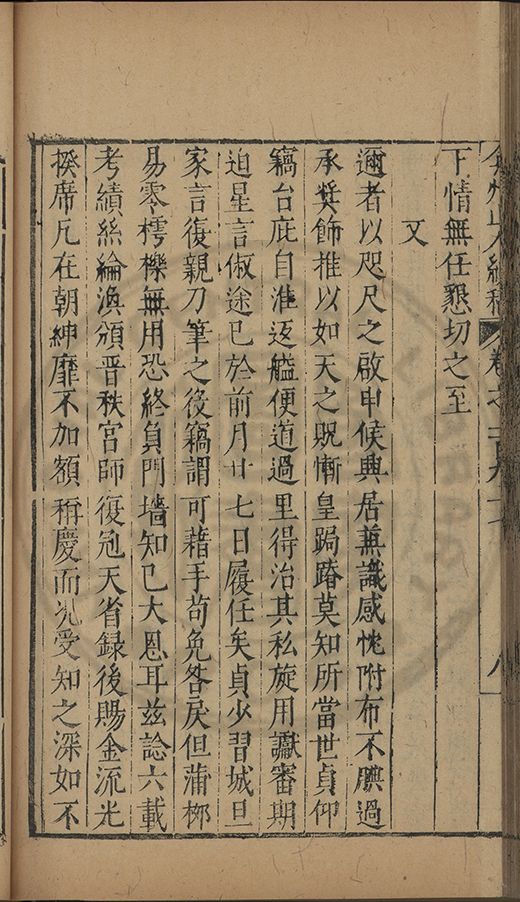 下情無任懇切之至
又
邇者以咫尺之啟申候興居兼識感愧附布不腆過
承奬飾推以如天之貺慚皇跼蹐莫知所當世貞仰
竊台庇自淮返艦便道過里得治其私旋用讞審期
迫星言俶途已於前月廿七日履任矣貞少習城旦
家言復親刀筆之役竊謂可藉手苟免咎戾但蒲柳
易零樗櫟無用恐終負門墻知己大恩耳兹諗六載
考績絲綸渙頒晋秩宫師復冠天省録後賜金流光
揆席凡在朝紳靡不加額稱慶而況受知之深如不